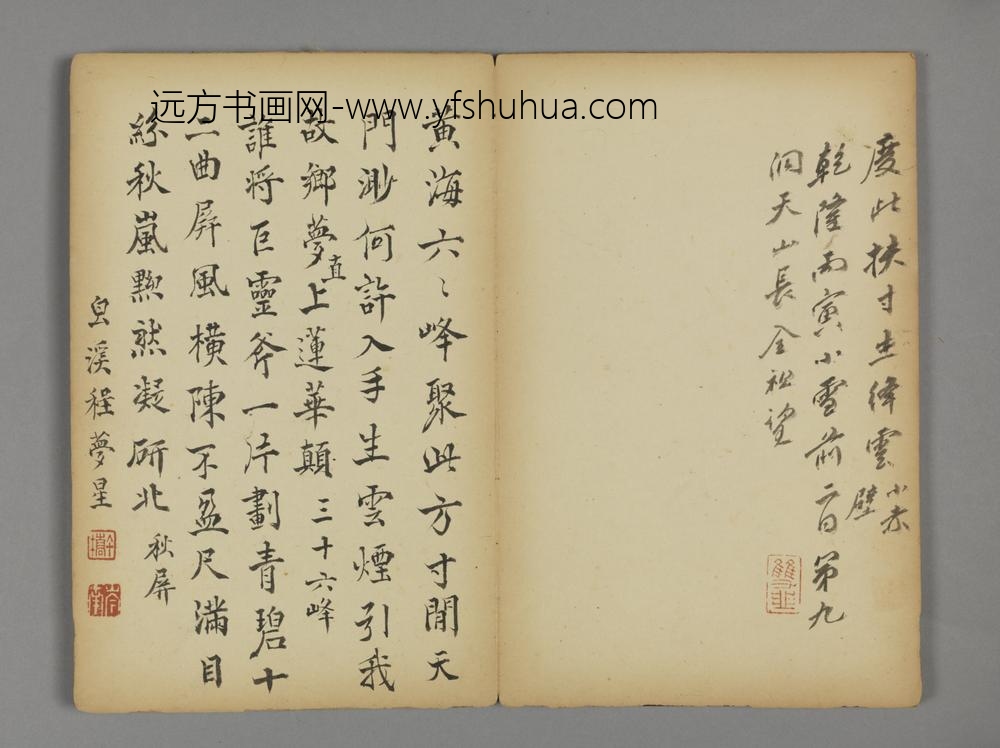 远方书画网-www.yfshuhua.com
度此扶寸走絳雲 小赤
壁
乾隆丙寅小雪前二日第九
洞天山長全祖望
雙韭
黃海六〻峰聚此方寸閒天
門渺何許入手生雲煙引我
故鄉夢直上蓮華顛 三十六峰
誰將巨靈斧一片劃青碧十
二曲屏風橫陳不盈尺滿目
絲秋嵐黟然凝研北 秋屏
皀溪程夢星